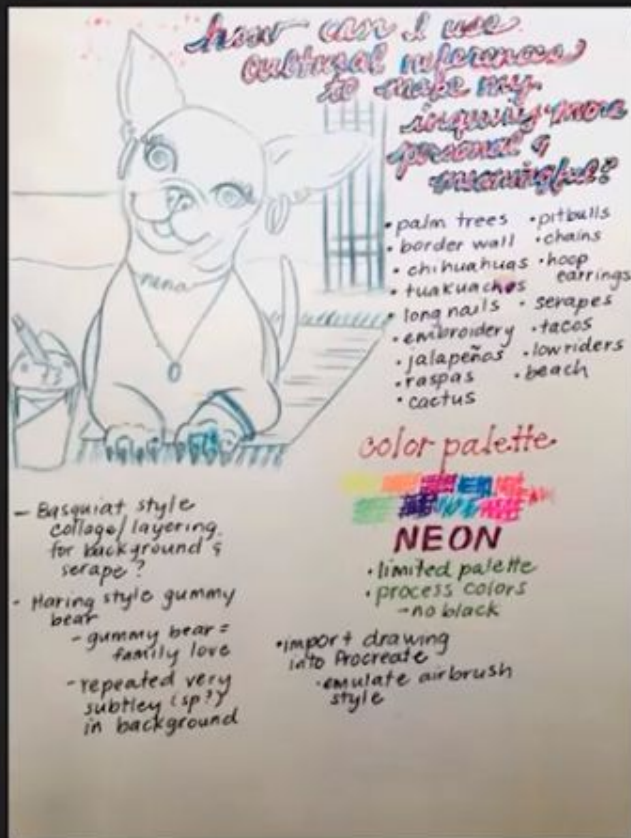 how can I use
cultural
to make my
inquiry more
personal &
meaningful?
• palm trees
• border wall
• chihuahuas
• tuakuaches
• long nails
• embroidery
• jalapeños
• raspas
• cactus
• pitbulls
• chains
• hoop
earrings
• serapes
• tacos
• lowriders
• beach
color palette
NEON
• limited palette
• process colors
- no black
- Basquiat style
collage/layering
for background &
serape?
- Haring style gummy
bear
- gummy bear =
family love
- repeated very
subtley (sp?)
in background
• import drawing
into Procreate
• emulate airbrush
style